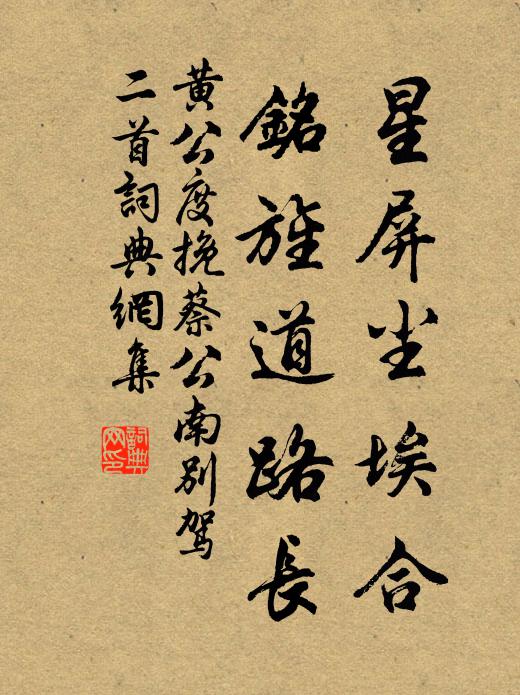 星屏尘埃合
銘旌道路長
黃公度挽蔡公南別駕
二首詞典網集
詞典網印